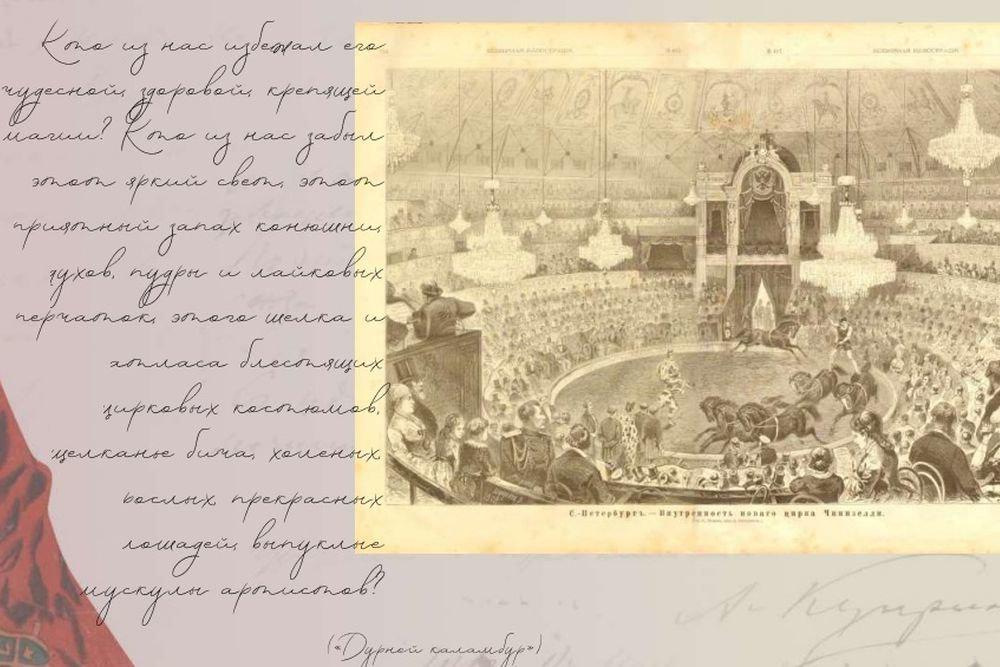 Кто из нас избежал его
чудесной, здоровой, крепящей
магии? Кто из нас забыл
этот яркий свет, этот
приятный запах конюшни,
духов, пудры и лайковых
перчаток, этого шелка и
атласа блестящих
цирковых костюмов,
щелканье бича, холеных,
рослых, прекрасных
лошадей, выпуклые
мускулы артистов?
(«Дурной каламбур»)
ВСЕМІРНАЯ ИЛЛЮСТРАЦІЯ
ВСЕМІРНАЯ ИЛЛЮСТРАЦІЯ
С.-Петербургъ. — Внутренность новаго цирка Чинизелли.
Ал Куприн